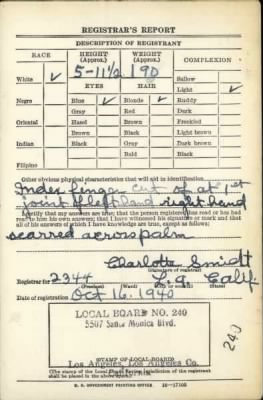 REGISTRAR'S REPORT
DESCRIPTION OF REGISTRANT
RACE HEIGHT (Approx.) WEIGHT (Approx.) COMPLEXION
White ✓ 5-11½ 190 Sallow
EYES HAIR Light ✓
Negro Blue ✓ Blonde ✓ Ruddy
Gray Red Dark
Oriental Hazel Brown Freckled
Brown Black Light brown
Indian Black Gray Dark brown
Bald Black
Filipino
Other obvious physical characteristics that will aid in identification
Index finger cut of at 1st
joint of left hand right hand
I certify that my answers are true; that the person registered has read or has had
read to him his own answers; that I have witnessed his signature or mark and that
all of his answers of which I have knowledge are true, except as follows:
scarred across palm
Charlotte Smidt
(Signature of registrar)
Registrar for 2344 L.A. Calif.
(Precinct) (Ward) (City or county) (State)
Date of registration Oct 16, 1940
LOCAL BOARD NO. 240
5507 Santa Monica Blvd.
STAMP OF LOCAL BOARD
Los Angeles, Los Angeles Co.
(The stamp of the Local Board having jurisdiction of the registrant
shall be placed in the above space.)
U. S. GOVERNMENT PRINTING OFFICE 16—17105
240